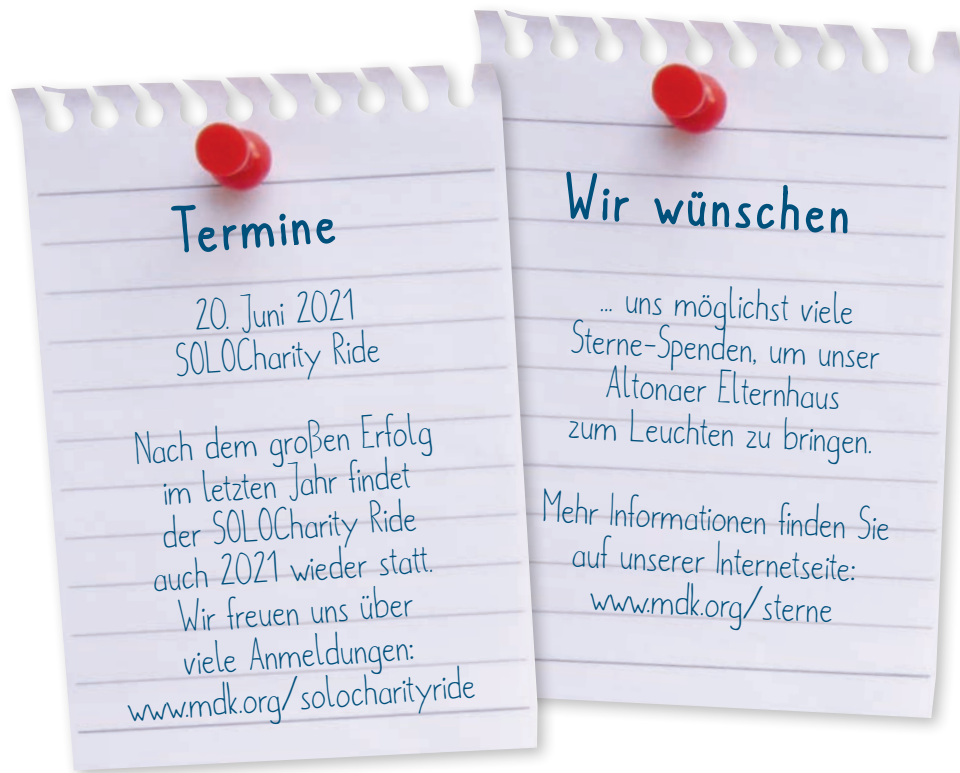 Termine
20. Juni 2021
SOLOCharity Ride
Nach dem großen Erfolg
im letzten Jahr findet
der SOLOCharity Ride
auch 2021 wieder statt.
Wir freuen uns über
viele Anmeldungen:
www.mdk.org/solocharityride
Wir wünschen
... uns möglichst viele
Sterne-Spenden, um unser
Altonaer Elternhaus
zum Leuchten zu bringen.
Mehr Informationen finden Sie
auf unserer Internetseite:
www.mdk.org/sterne